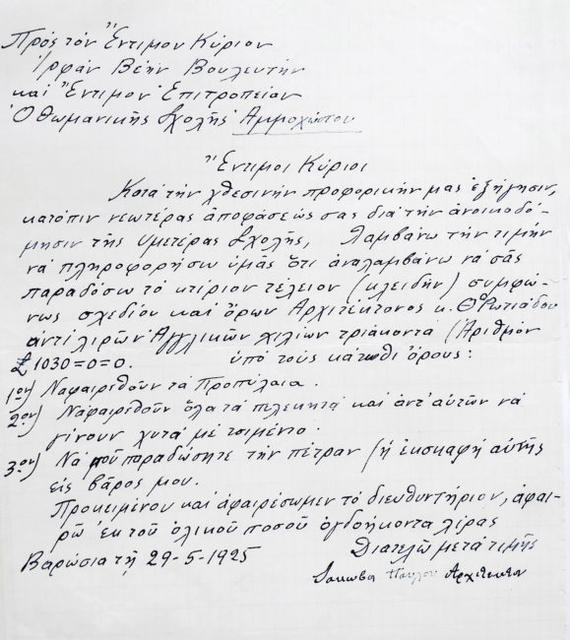 Πρὸς τὸν Ἔντιμον Κύριον
Ἰρφὰν Βέην Βουλευτὴν
καὶ Ἔντιμον Ἐπιτροπείαν
Ὀθωμανικῆς Σχολῆς Ἀμμοχώστου
Ἔντιμοι Κύριοι
Κατὰ τὴν χθεσινὴν προφορικήν μας ἐξήγησιν,
κατόπιν νεωτέρας ἀποφάσεώς σας διὰ τὴν ἀνοικοδό-
μησιν τῆς ὑμετέρας Σχολῆς, λαμβάνω τὴν τιμὴν
νὰ πληροφορήσω ὑμᾶς ὅτι ἀναλαμβάνω νὰ σᾶς
παραδόσω τὸ κτίριον τέλειον (κλειδὴν) συμφώ-
νως σχεδίου καὶ ὅρων Ἀρχιτέκτονος κ. Θ. Φωτιάδου
ἀντὶ λιρῶν Ἀγγλικῶν χιλίων τριάκοντα (Ἀριθμὸν
£1030=0=0. ὑπὸ τοὺς κάτωθι ὅρους:
1ον) Ναφαιρεθοῦν τὰ Προπύλαια.
2ον) Ναφαιρεθοῦν ὅλα τὰ πελεκητὰ καὶ ἀντ' αὐτῶν νὰ
γίνουν χυτὰ μὲ τσιμένο.
3ον) Νὰ μοῦ παραδώσητε τὴν πέτραν (ἡ ἐκσκαφὴ αὐτῆς
εἰς βάρος μου.
Προκειμένου καὶ ἀφαιρέσωμεν τὸ διευθυντήριον, ἀφαι-
ρῶ ἐκ τοῦ ὁλικοῦ ποσοῦ ὀγδοήκοντα λίρας
Βαρώσια τῇ 29-5-1925 Διατελῶ μετὰ τιμῆς
Παύλου Ἀρχιτέκτων